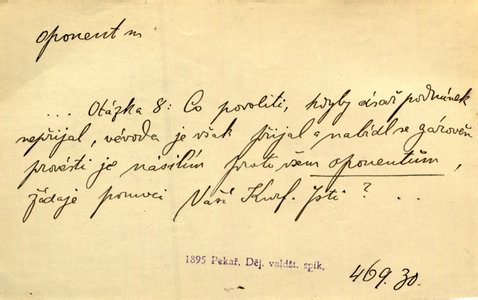 oponent m.
... Otázka 8: Co povoliti, kdyby císař podmínek
nepřijal, vévoda je však přijal a nabídl se zároveň
provésti je násilím proti všem oponentům,
žádaje pomoci Vaší Kurf. Jsti? ...
1895 Pekař, Děj. valdšt. spik.
469. 30.